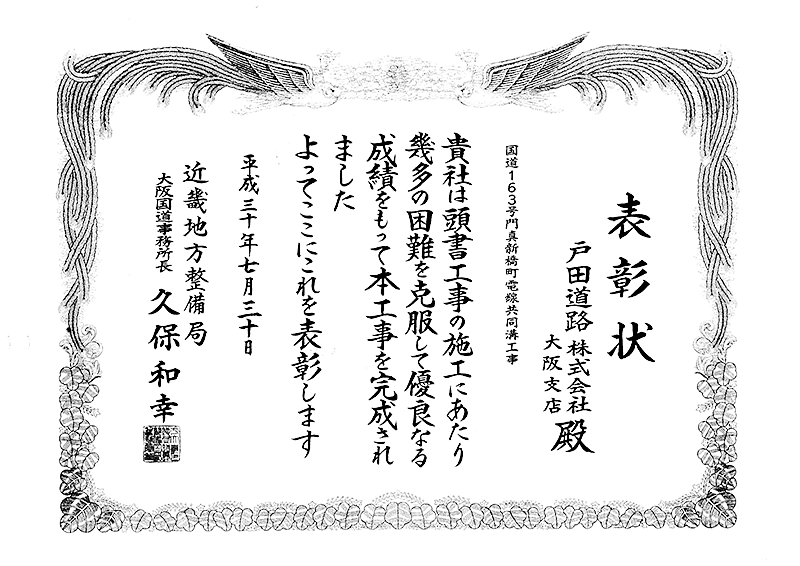 表彰状
戸田道路株式会社
大阪支店
殿
国道163号門真新橋町電線共同溝工事
貴社は頭書工事の施工にあたり
幾多の困難を克服して優良なる
成績をもって本工事を完成され
ました
よってここにこれを表彰します
平成三十年七月三十日
近畿地方整備局
大阪国道事務所長
久保和幸